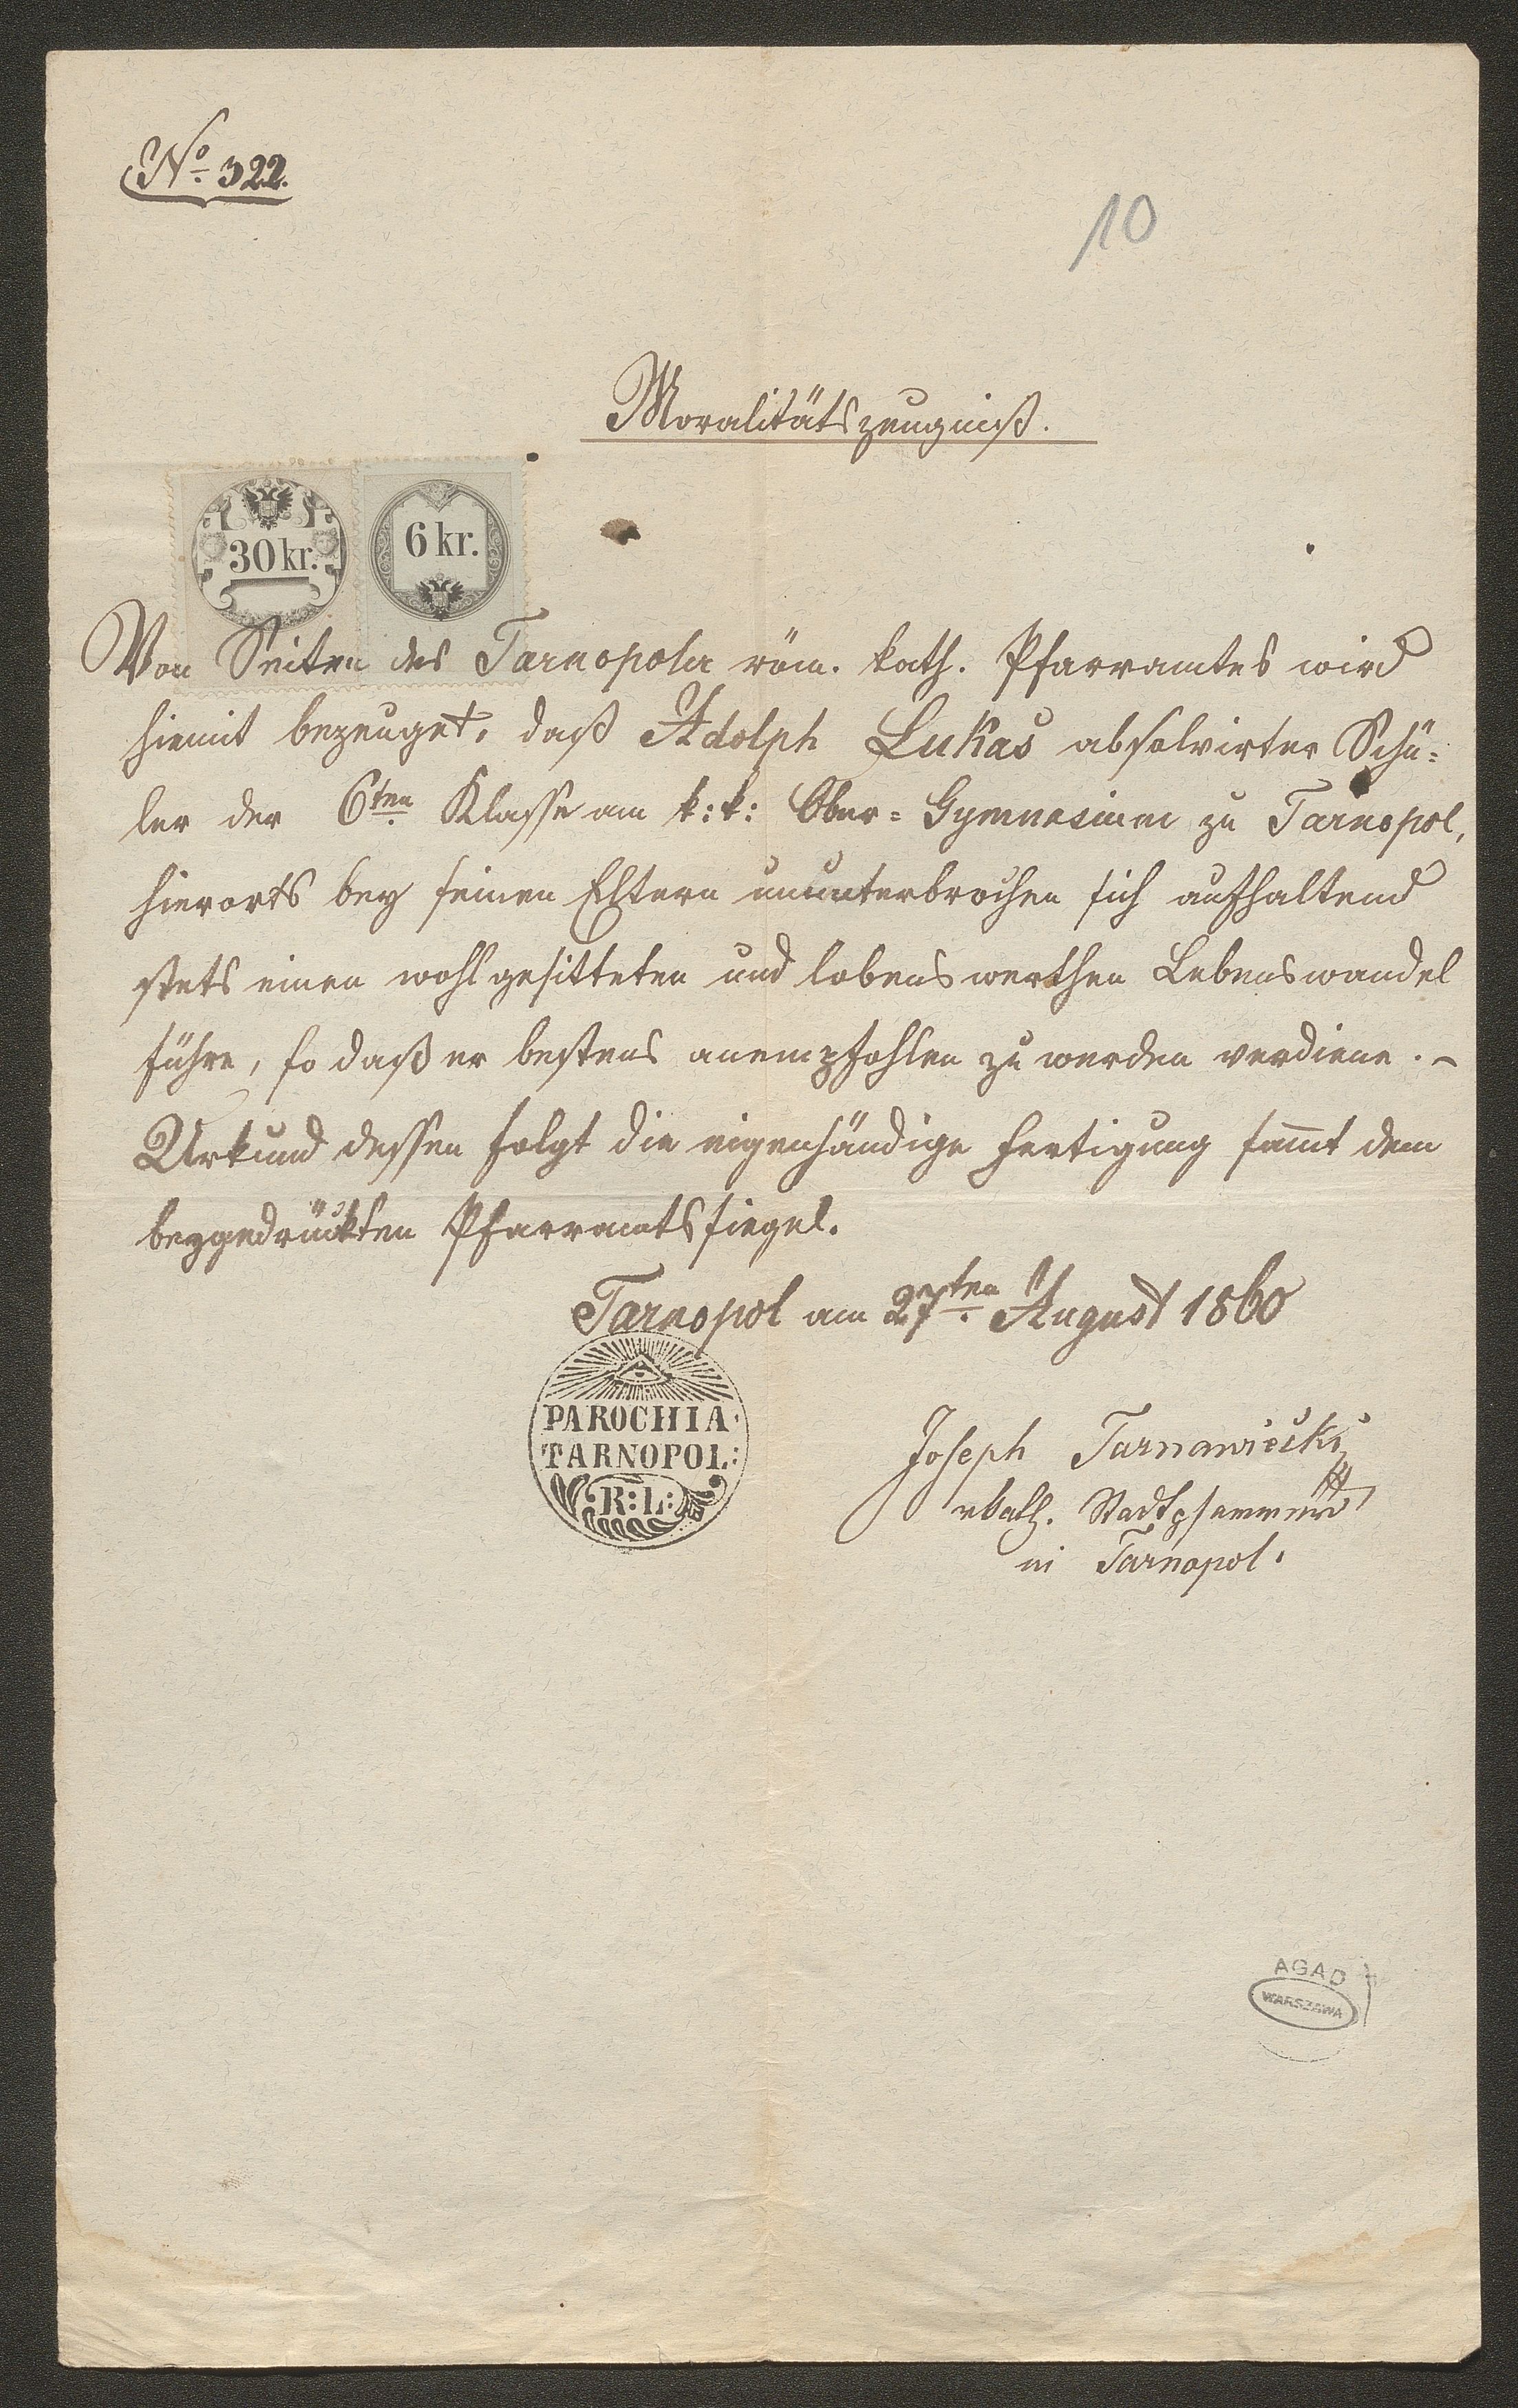 No 322.
10
Moralitätszeugniß.
30 kr.
6 kr.
Von Seiten des Tarnopoler röm. kath. Pfarramtes wird
hiemit bezeuget, daß Adolph Lukas absolvirter Schü=
ler der 6ten Klasse am k: k: Ober=Gymnasium zu Tarnopol,
hierorts bey seinen Eltern ununterbrochen sich aufhaltend
stets einen wohlgesitteten und lobenswerthen Lebenswandel
führe, so daß er bestens anempfohlen zu werden verdiene. –
Urkund dessen folgt die eigenhändige Fertigung sam̅t dem
beygedrückten Pfarramtssiegel.
Tarnopol am 27ten August 1860
PAROCHIA
TARNOPOL:
R: L:
Joseph Tarnawiecki
rkath. Stadtpfarrer
in Tarnopol.
AGAD
WARSZAWA